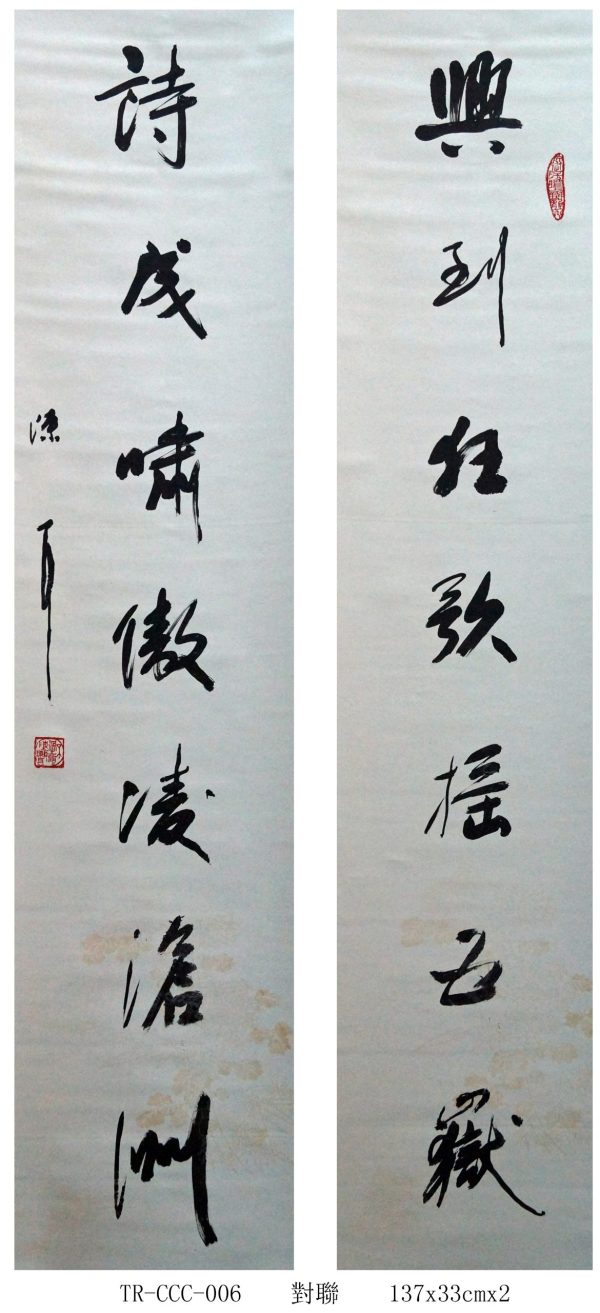 興到狂歌搖五嶽
詩成嘯傲凌滄洲
TR-CCC-006 對聯 137x33cmx2